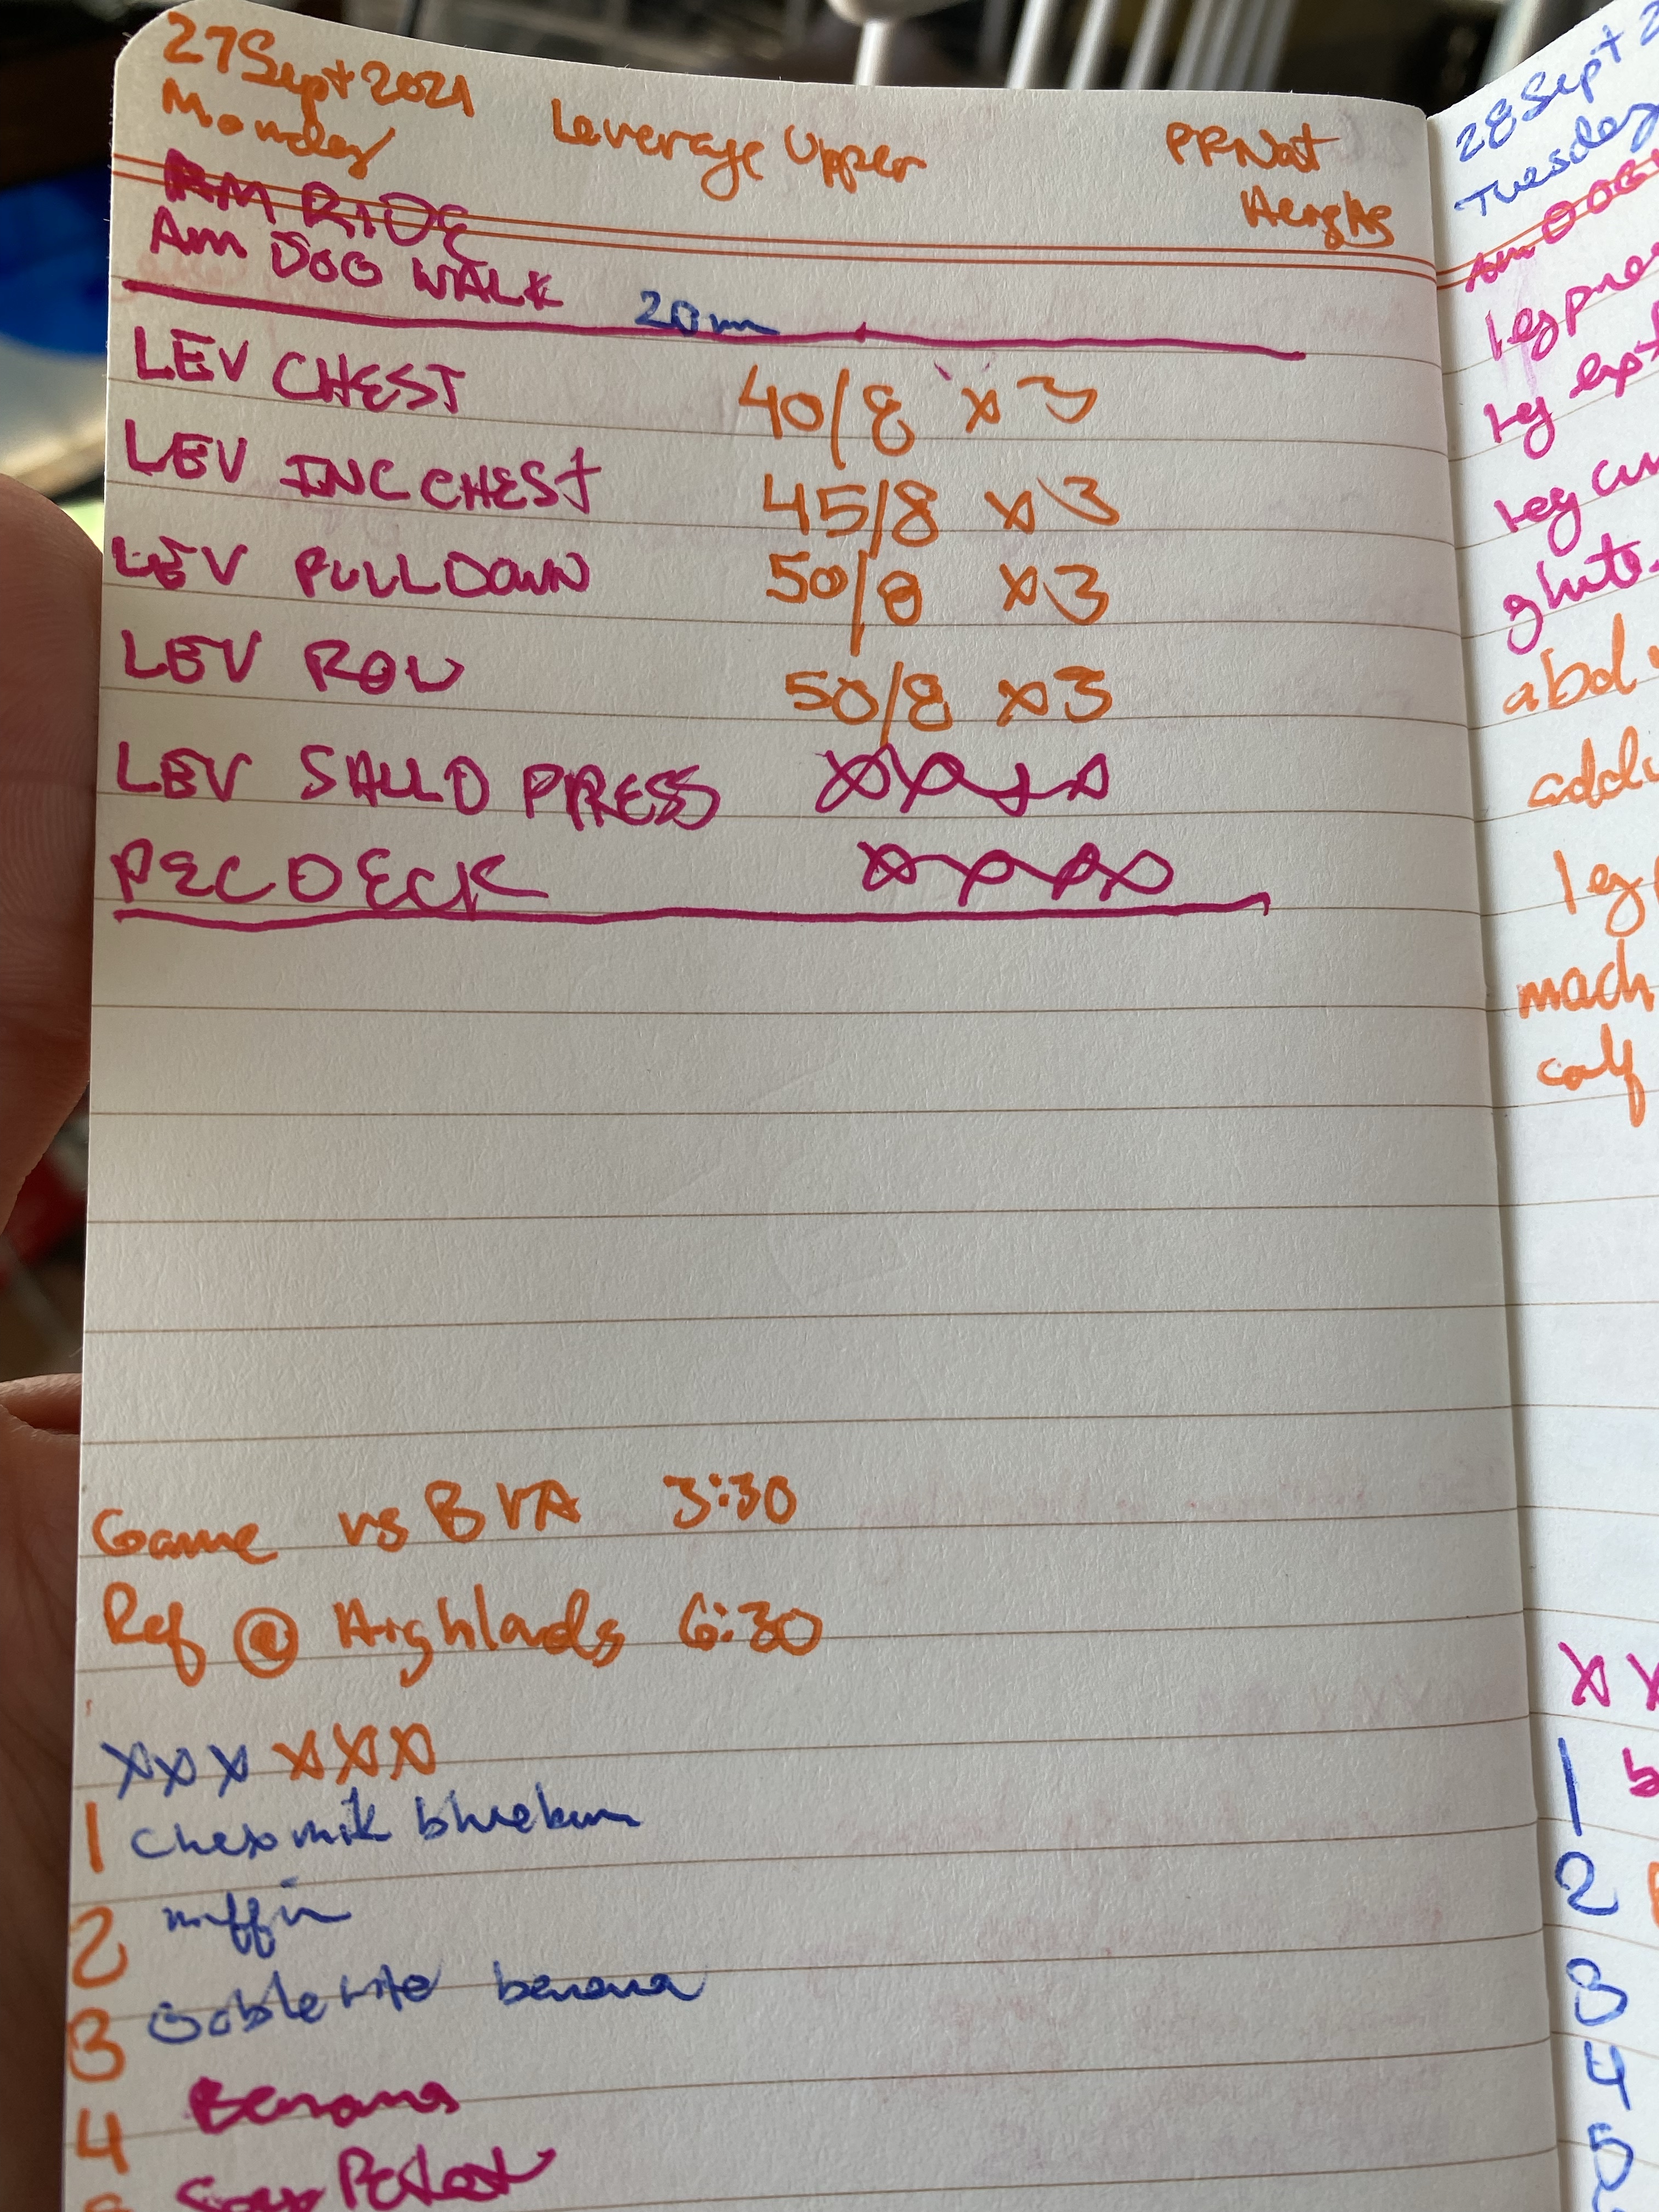 27 Sept 2021
Monday
Leverage Upper
PR Nat
Heights
AM RIDE
AM DOG WALK 20m
LEV CHEST 40/8 x 3
LEV INC CHEST 45/8 x 3
LEV PULLDOWN 50/8 x 3
LEV ROW 50/8 x 3
LEV PRESS XXXX
PEC DECK XXXX
Game vs BVA 3:30
Ref @ Highlads 6:30
XXX XXX
1 chex mix
2 muffin
3 banana
4 Banana
28 Sept 2
Tuesday
AM DOG
leg pres
leg ext
leg cur
glute
abd
addu
leg
mach
calf
X X
1 b
2
3
4
5